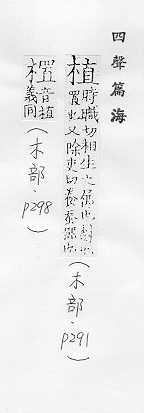 四聲篇海
植時職切相生之
置也又除吏切養蠶器也
(木部·p291)
㯰音植
義同
(木部·p298)